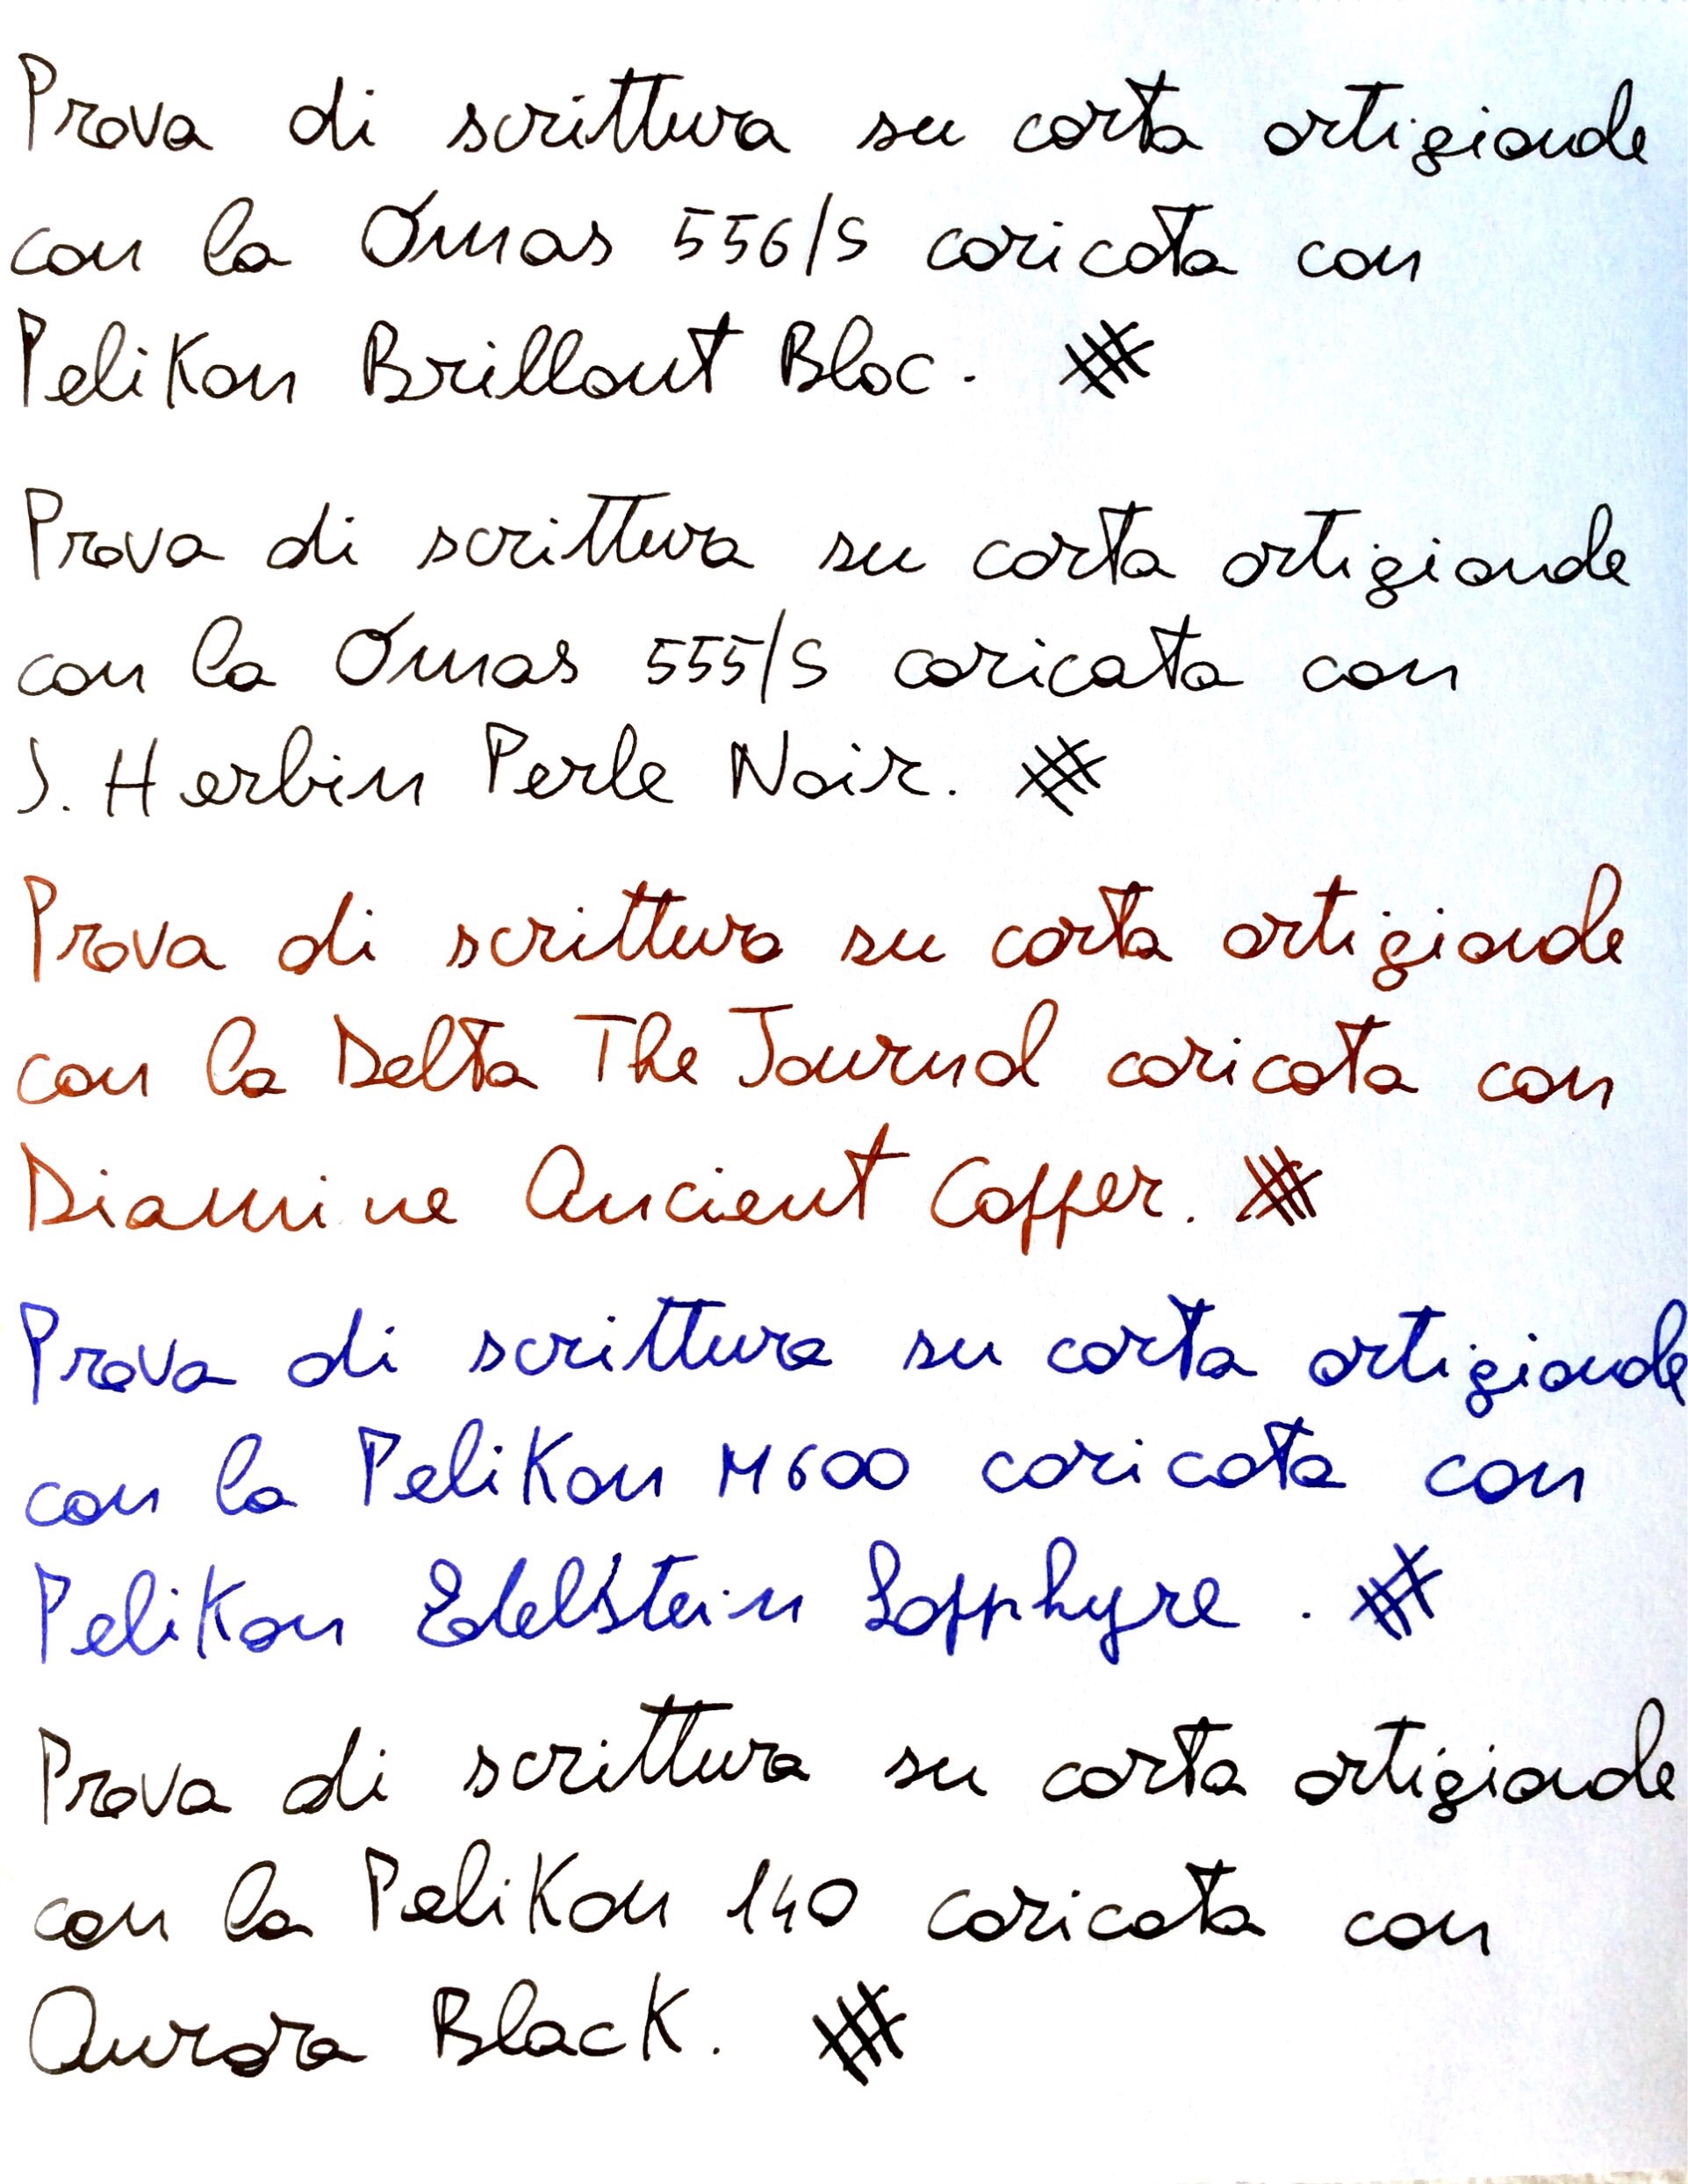 Prova di scrittura su carta artigianale
con la Omas 556/S caricata con
Pelikan Brillant Black.
Prova di scrittura su carta artigianale
con la Omas 555/S caricata con
J. Herbin Perle Noir.
Prova di scrittura su carta artigianale
con la Delta The Journal caricata con
Diamine Ancient Copper.
Prova di scrittura su carta artigianale
con la Pelikan M600 caricata con
Pelikan Edelstein Sapphyre.
Prova di scrittura su carta artigianale
con la Pelikan 140 caricata con
Aurora Black.